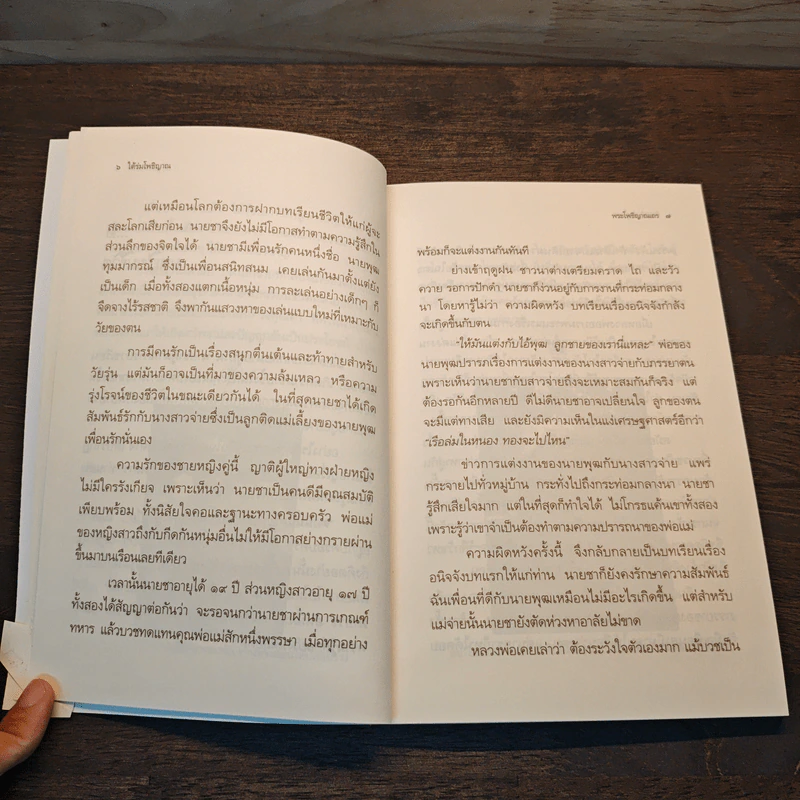 ๖ ใต้ร่มโพธิญาณ
แต่เหมือนโลกต้องการฝากบทเรียนชีวิตให้แก่ผู้จะ
สละโลกเสียก่อน นายชาจึงยังไม่มีโอกาสทำตามความรู้สึกใน
ส่วนลึกของจิตใจได้ นายชามีเพื่อนรักคนหนึ่งชื่อ นายพุฒ
ทุมมากรณ์ ซึ่งเป็นเพื่อนสนิทสนม เคยเล่นกันมาตั้งแต่ยัง
เป็นเด็ก เมื่อทั้งสองแตกเนื้อหนุ่ม การละเล่นอย่างเด็กๆ ก็
จืดจางไร้รสชาติ จึงพากันแสวงหาของเล่นแบบใหม่ที่เหมาะกับ
วัยของตน
การมีคนรักเป็นเรื่องสนุกตื่นเต้นและท้าทายสำหรับ
วัยรุ่น แต่มันก็อาจเป็นที่มาของความล้มเหลว หรือความ
รุ่งโรจน์ของชีวิตในขณะเดียวกันได้ ในที่สุดนายชาได้เกิด
สัมพันธ์รักกับนางสาวจ่ายซึ่งเป็นลูกติดแม่เลี้ยงของนายพุฒ
เพื่อนรักนั่นเอง
ความรักของชายหญิงคู่นี้ ญาติผู้ใหญ่ทางฝ่ายหญิง
ไม่มีใครรังเกียจ เพราะเห็นว่า นายชาเป็นคนดีมีคุณสมบัติ
เพียบพร้อม ทั้งนิสัยใจคอและฐานะทางครอบครัว พ่อแม่
ของหญิงสาวถึงกับกีดกันหนุ่มอื่นไม่ให้มีโอกาสย่างกรายผ่าน
ขึ้นมาบนเรือนเลยทีเดียว
เวลานั้นนายชาอายุได้ ๑๙ ปี ส่วนหญิงสาวอายุ ๑๗ ปี
ทั้งสองได้สัญญาต่อกันว่า จะรอจนกว่านายชาผ่านการเกณฑ์
ทหาร แล้วบวชทดแทนคุณพ่อแม่สักหนึ่งพรรษา เมื่อทุกอย่าง
พระโพธิญาณเถร ๗
พร้อมก็จะแต่งงานกันทันที
ย่างเข้าฤดูฝน ชาวนาต่างเตรียมคราด ไถ และวัว
ควาย รอการปักดำ นายชาก็ง่วนอยู่กับการงานที่กระท่อมกลาง
นา โดยหารู้ไม่ว่า ความผิดหวัง บทเรียนเรื่องอนิจจังกำลัง
จะเกิดขึ้นกับตน
“ให้มันแต่งกับไอ้พุฒ ลูกชายของเรานี่แหละ” พ่อของ
นายพุฒปรารภเรื่องการแต่งงานของนางสาวจ่ายกับภรรยาตน
เพราะเห็นว่านายชากับสาวจ่ายถึงจะเหมาะสมกันก็จริง แต่
ต้องรอกันอีกหลายปี ดีไม่ดีนายชาอาจเปลี่ยนใจ ลูกของตน
จะมีแต่ทางเสีย และยังมีความเห็นในแง่เศรษฐศาสตร์อีกว่า
“เรือล่มในหนอง ทองจะไปไหน”
ข่าวการแต่งงานของนายพุฒกับนางสาวจ่าย แพร่
กระจายไปทั่วหมู่บ้าน กระทั่งไปถึงกระท่อมกลางนา นายชา
รู้สึกเสียใจมาก แต่ในที่สุดก็ทำใจได้ ไม่โกรธแค้นเขาทั้งสอง
เพราะรู้ว่าเขาจำเป็นต้องทำตามความปรารถนาของพ่อแม่
ความผิดหวังครั้งนี้ จึงกลับกลายเป็นบทเรียนเรื่อง
อนิจจังบทแรกให้แก่ท่าน นายชาก็ยังคงรักษาความสัมพันธ์
ฉันเพื่อนที่ดีกับนายพุฒเหมือนไม่มีอะไรเกิดขึ้น แต่สำหรับ
แม่จ่ายนั้นนายชายังตัดห่วงหาอาลัยไม่ขาด
หลวงพ่อเคยเล่าว่า ต้องระวังใจตัวเองมาก แม้บวชเป็น